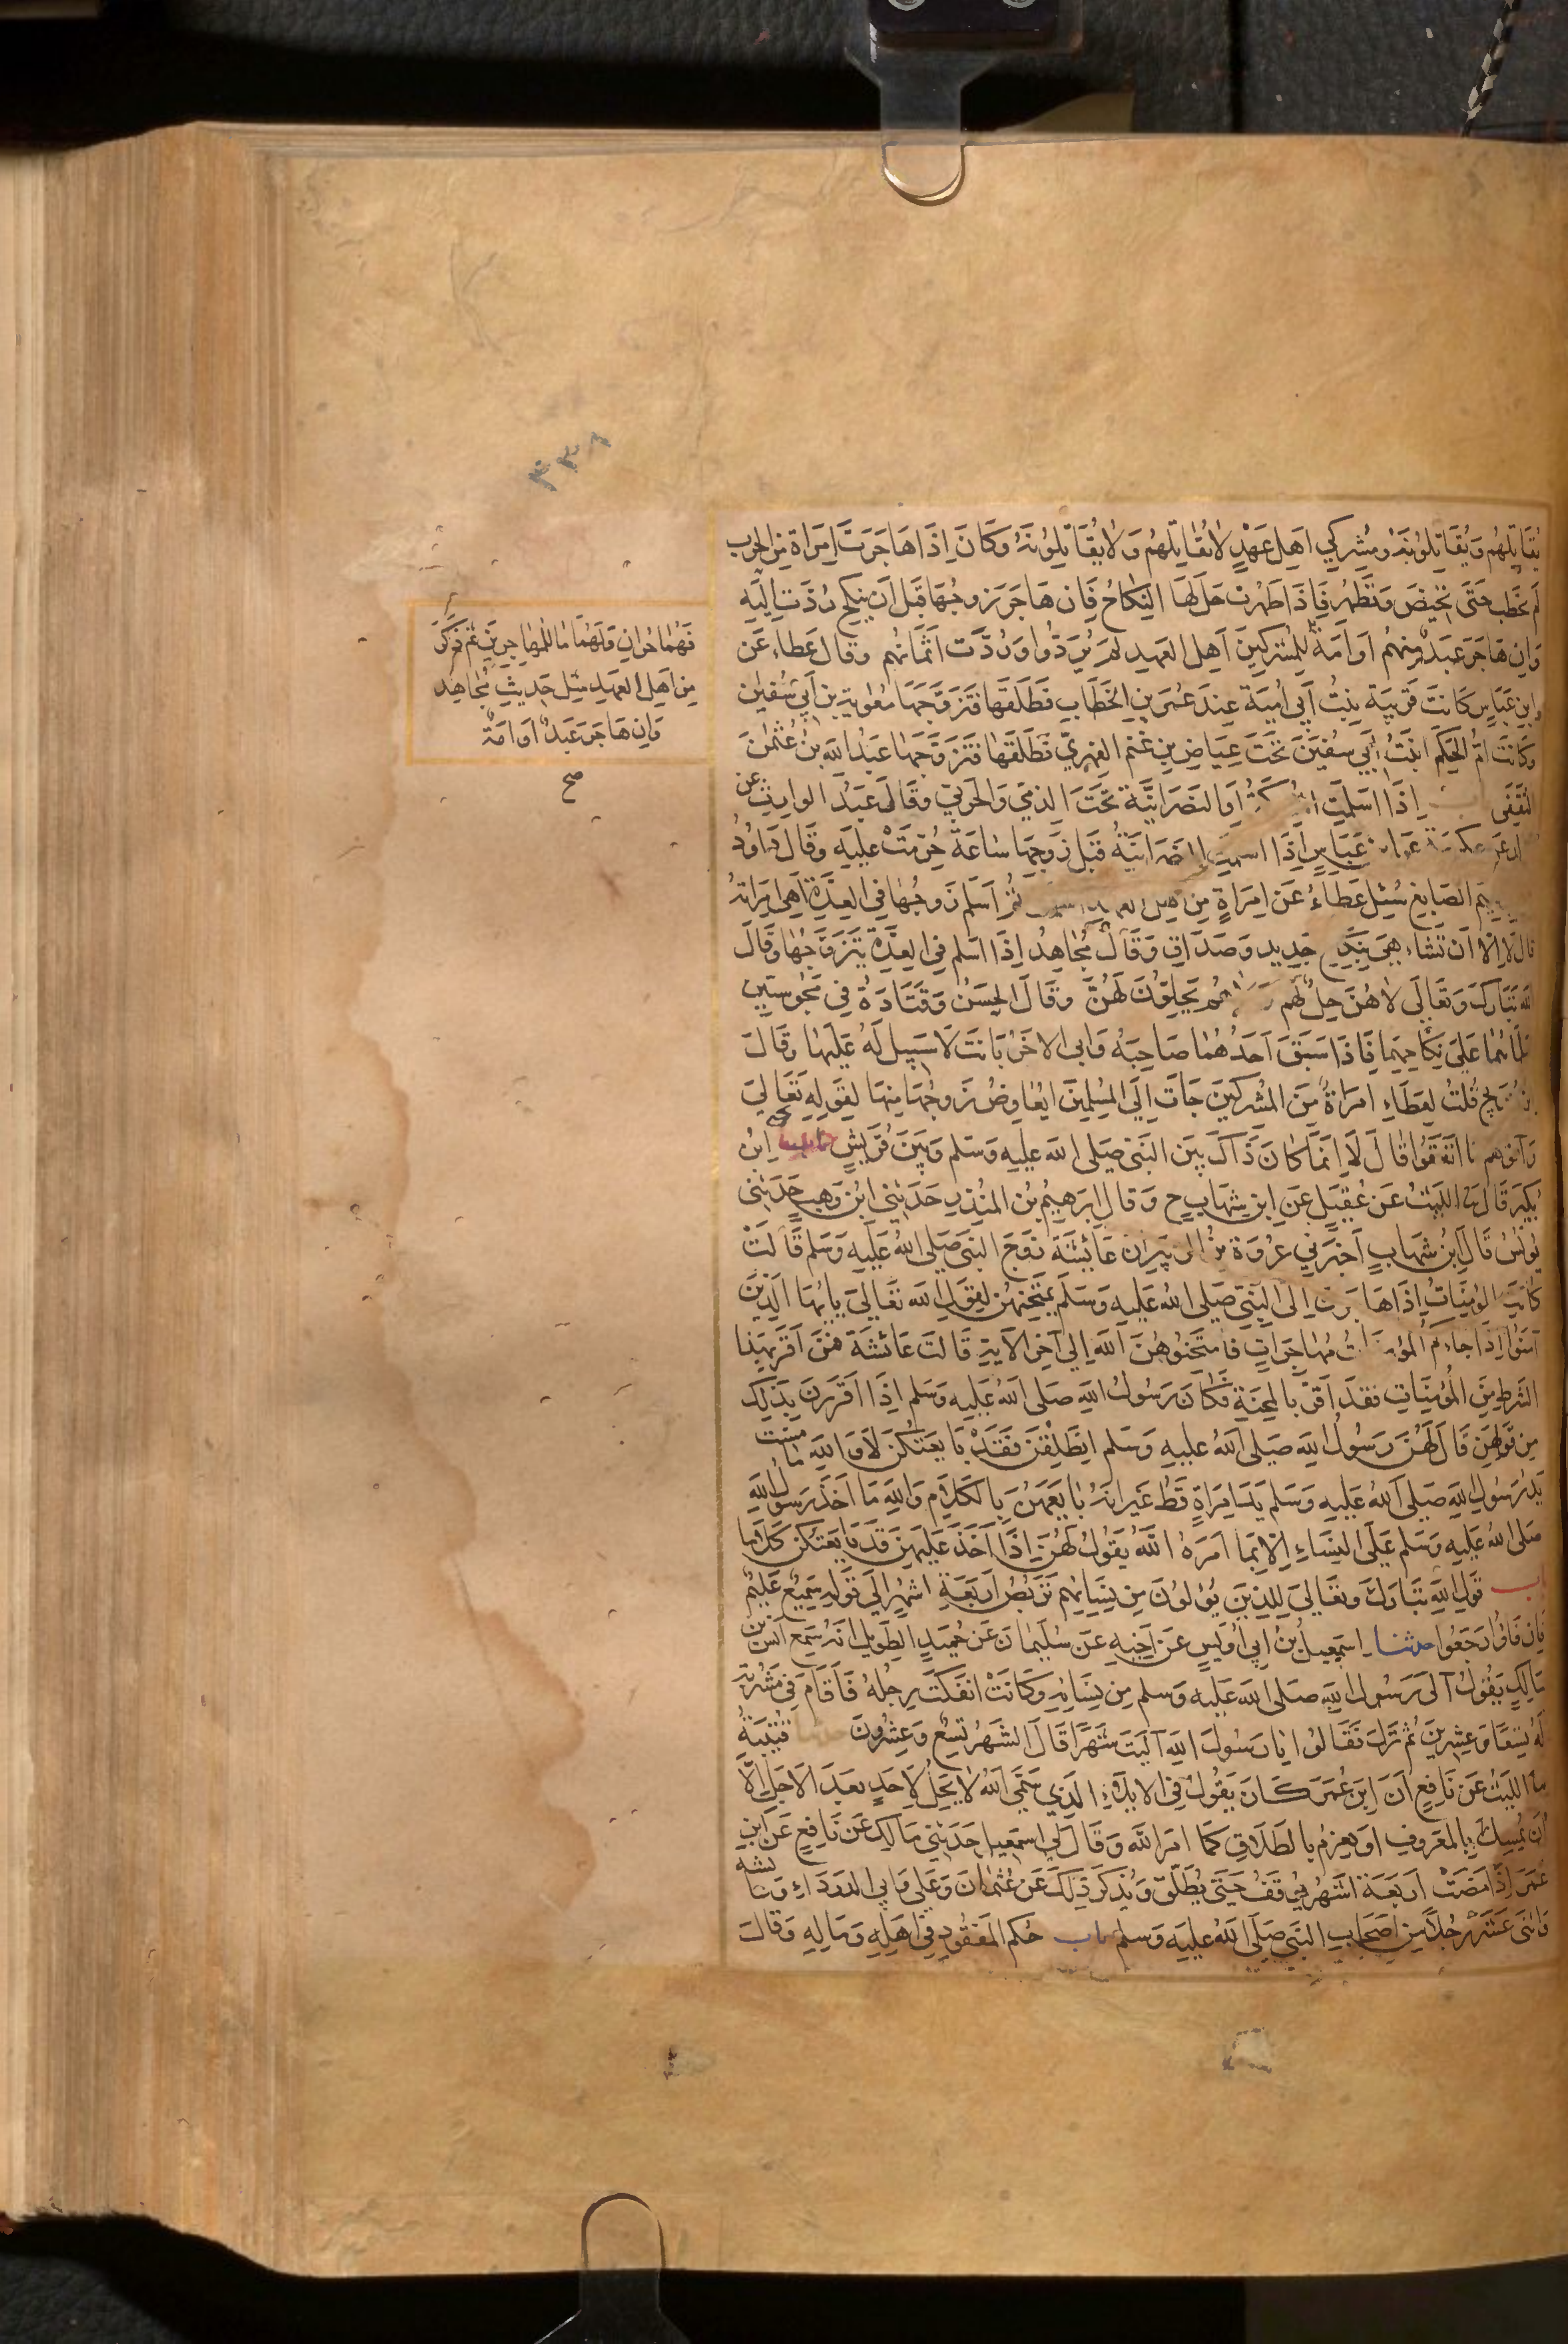 ٣٣٨
يُقَاتِلُهُم وَيُقَاتِلُونَهُ وَمُشْرِكِي اهل عَهْدٍ لا يُقَاتِلُهُم وَلا يُقَاتِلُونَهُ وَكَانَ اِذَا هَاجَرَت اِمرَاة مِن الحرب
لم تخطب حَتى تحيضَ وَتَطهُر فَاِذَا طهرت حَلّ لهَا النكاحُ فَاِن هَاجَرَ زوجُهَا قَبل اَن ينكح رُدّت اِليَه
وَاِن هَاجَرَ عَبدٌ مِنهُم اَو اَمَة
للمشركينَ اَهل العَهدِ لَم يُرَدُّوا وَرُدَّت اَثمَانُهم وقال عَطاء عَن
ابنِ عَبَّاسٍ كَانت قَرِيبَة بِنتُ اَبي اُميَة عِندَ عُمَر بنِ الخَطَّابِ فَطَلَّقهَا فَتَزَوَّجَهَا معٰوية بن اَبي سُفيٰن
وكَانَت امُّ الحَكَم ابنَتُ اَبي سفيٰن تَحْتَ عِيَاضِ بنِ غَنْم الفِهريّ فَطَلَّقَهَا فَتَزَوَّجَهَا عَبدُ الله بنُ عُثمٰنَ
الثقَفي اِذَا اسلمت اَو النصَرانيَّة تَحْتَ الذمي وَالحربيّ وقَالَ عَبْدُ الوارِثِ عن
عكرمة عَبَّاسٍ اِذَا اسلمت قَبل زَوجِهَا سَاعَة حُرِّمَتْ عليه وَقالَ دَاودُ
الصَايغ سُئِل عَطَاءُ عَن امرَاةٍ مِن ثُمّ اَسلم زَوجُهَا في العِدَّة اَهي امرَاتُهُ
قال لا اِلا اَن تشاء هيَ بنكاح جَدِيدٍ وَصَدَاقٍ وَقَالَ مُجَاهِدٌ اِذَا اَسلم في العِدَّة يَتَزوَّجُهَا وَقَالَ
الله تَبَارَكَ وَتعَالَى لا هُنَّ حِلٌّ لَهُم يَحِلُّونَ لَهُنَّ وقَالَ الحَسَنُ وَقَتَادَةُ في مَجُوسيَّين
عَلى نِكَاحِهِما فَاِذَا سَبَقَ اَحَدُهُمَا صَاحِبَهُ وَابى الاخَرُ بَانَت لا سَبيل لَهُ عَليهَا وقَالَ
ابن جُرَيج قُلتُ لِعَطَاءٍ امرَاةٌ مِنَ المُشْركينَ جَاتْ اِلَى المُسْلمينَ اَيُعَاوَضُ زَوجُهَا مِنهَا لِقَولِهِ تَعَالى
وَاتوهم مَا انفَقُوا قَالَ لَا اِنَّمَا كَانَ ذَاكَ بَيْنَ النَّبيّ صَلى الله عليه وَسَلم وَبَيْنَ قُرَيشٍ ابْن
بُكَيرٍ قَالَ ثنَا الليْثُ عَن عُقَيلٍ عَن ابنِ شِهَابٍ ح وَقال اِبرَهِيمُ بْن المُنذِرِ حَدثني ابْنُ وَهبٍ حَدثني
يُونُسُ قَالَ ابنُ شِهَابٍ اَخبَرَني عُرْوَة بْنُ الزبَيرِ اَنَّ عَائِشَةَ زَوجَ النبيّ صَلى اللهُ عَلَيه وَسلم قَالَتْ
كانت المؤمنَاتُ اِذَا هَاجَرن اِلى النَّبيّ صَلى اللهُ عليه وَسَلم يَمْتَحِنُهُن لِقَولِ الله تعَالى يٰايُّهَا الذينَ
آمَنُوا اِذا جاءَكُم المؤمنَاتُ مُهَاجِرَاتٍ فَامتَحِنُوهُنَّ الله اِلى آخِر الآيةِ قَالت عَائشَة فَمَن اَقَرَّ بِهَذا
الشرطِ مِنَ المُؤمِنَاتِ فَقَد اَقَرَّ بالمِحْنَةِ فكَانَ رَسُولُ اللهِ صَلى اللهُ عَليهِ وَسَلم اِذَا اَقررنَ بذلِكَ
مِن قَولِهِن قَالَ لَهُنَّ رَسُولُ الله صَلى اللهُ عليهِ وَسَلم انطَلِقْنَ فَقَدْ بَايَعتُكُنَّ لا وَاللهِ مَا مسّت
يَدُ رَسُولِ الله صَلى اللهُ عَليهِ وَسَلم يَدَ امرَاةٍ قَطُّ غَيرَ انَّهُ بَايعَهُنَّ بِالكَلَامِ وَاللهِ مَا اَخَذَ رَسُولُ اللهِ
صَلى اللهُ عليهِ وَسَلم عَلَى النِّسَاءِ اِلا بِمَا اَمَرَهُ اللهُ يَقُولُ لَهُنَّ اِذَا اَخَذَ عَلَيهِنَّ قَد بَايَعتُكُنَّ كَلَامًا
باب قَولِ اللهِ تَبَارَكَ وتعَالى لِلذِينَ يُؤلونَ مِن نِسَائِهم تَرَبُّصُ اَربَعَةِ اشْهُرٍ اِلى قَولِه سَمِيعٌ عَلِيمٌ
فَاِن فَاؤا رَجَعُوا حدثنا اِسمٰعيلُ بْنُ اَبي اُوَيسٍ عَن اَخِيهِ عَن سُلَيمَانَ عَن حُمَيدٍ الطَّوِيلِ اَنَّهُ سَمِعَ اَنَسَ بن
مَالِكٍ يَقُولُ آلَى رَسُولُ اللهِ صَلى اللهُ عَليهِ وَسلم مِن نِسَائِهِ وَكَانَتْ انفَكَّتْ رِجلُهُ فَاَقَامَ في مَشْرُبة
لَهُ تِسعًا وَعِشرِينَ ثُمَّ نَزَلَ فَقَالُوا يَا رَسُولَ اللهِ آليتَ شَهْرًا قَالَ الشَهرُ تِسعٌ وَعِشرُونَ حدثنا قُتَيبَةُ
ثنا الليثُ عَن نَافِعٍ اَنَّ ابنَ عُمَرَ كَانَ يَقُولُ في الايلَاءِ الذِي سَمَّى اللهُ لا يَحِلُّ لِاحَدٍ بعدَ الاجَلِ اِلّا
اَن يُمسِكَ بِالمَعرُوفِ اَو يعزِمَ بالطَلَاقِ كَما اَمَرَ الله وَقَالَ لي اسمٰعيل حَدثني مَالك عَن نَافِعٍ عَن ابنِ
عُمَرَ اِذَا مَضَتْ اَربَعَة اَشهُرٍ يوقَفُ حَتَى يُطَلّقَ وَيُذكَرُ ذلِكَ عَن عُثمَانَ وَعَلي وَابي الدردَاءِ وعائشة
وَاثنَى عَشَرَ رَجُلاً مِن اَصحَابِ النبي صَلى اللهُ عليهِ وَسلم باب حُكم المَفقُودِ في اَهلِهِ وَمَالِهِ وَقَالَ
فَهُمَا حُرانِ وَلَهُمَا مَا للمهاجِرينَ ثم ذكرَ
مِن اَهلِ العَهدِ مثل حَديثِ مُجَاهِدٍ
وَاِن هَاجَرَ عَبدٌ اَو اَمَةٌ
صح